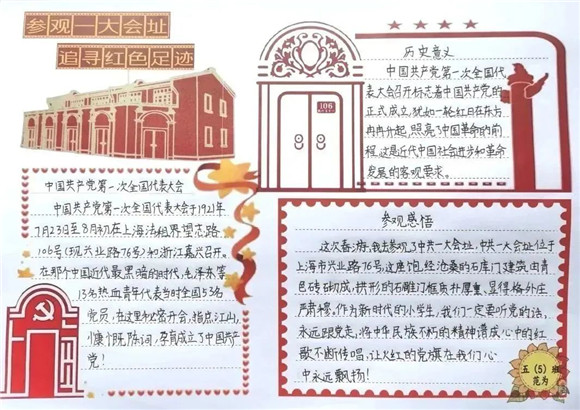 参观一大会址
追寻红色足迹
中国共产党第一次全国代表大会
中国共产党第一次全国代表大会于1921年
7月23日至8月初在上海法租界望志路
106号(现兴业路76号)和浙江嘉兴召开。
在那个中国近代最黑暗的时代,毛泽东等
13名热血青年代表当时全国53名
党员,在这里秘密召开会,指点江山,
慷慨陈词,孕育成立了中国共产
党!
106
历史意义
中国共产党第一次全国代
表大会召开标志着中国共产党的
正式成立,犹如一轮红日在东方
冉冉升起,照亮了中国革命的前
程,这是近代中国社会进步和革命
发展的客观要求。
参观感悟
这次春游,我去参观了中共一大会址,中共一大会址位于
上海市兴业路76号,这座饱经沧桑的石库门建筑由青
色砖砌成,拱形的石雕门框质朴厚重、显得格外庄
严肃穆。作为新时代的小学生,我们一定要听党的话,
永远跟党走,将中华民族不朽的精神谱成心中的红
歌不断传唱,让火红的党旗在我们心
中永远飘扬!
五(5)班
范为